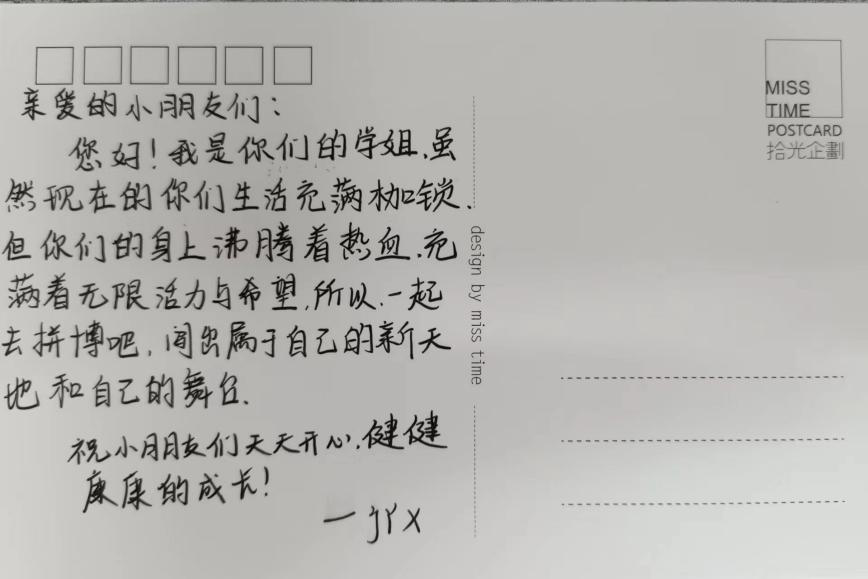 亲爱的小朋友们：
您好！我是你们的学姐.虽
然现在的你们生活充满枷锁.
但你们的身上沸腾着热血.充
满着无限活力与希望.所以.一起
去拼博吧，闯出属于自己的新天
地和自己的舞台.
祝小朋友们天天开心.健健
康康的成长！
MISS
TIME
POSTCARD
拾光企劃
design by miss time